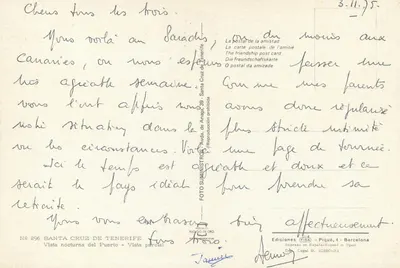 3.11.75
Chers tous les trois.
Nous voilà au Paradis, ou du moins aux
Canaries, où nous espérons passer une
très agréable semaine. Comme mes parents
vous l'ont appris nous avons donc régularisé
notre situation dans la plus stricte intimité
vu les circonstances. Voilà une page de tournée.
Ici le temps est agréable et doux et ce
serait le pays idéal pour prendre sa
retraite.
Nous vous embrassons bien affectueusement
tous trois.
La postal de la amistad
La carte postale de l'amitié
The friendship post card
Die Freundschaftskarte
O postal da amizade
Santa Cruz de Tenerife
SANTA CRUZ DE TENERIFE
Vista nocturna del Puerto - Vista parcial
Ediciones Piqué, S - Barcelona